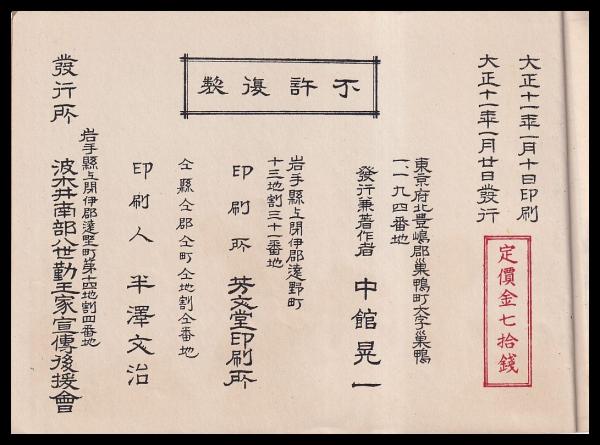 大正十一年一月十日印刷
大正十一年一月廿日發行
定價金七拾錢
不許復製
東京府北豊嶋郡巢鴨町大字巢鴨
一、一九四番地
發行兼著作者 中館晃一
岩手縣上閉伊郡遠野町
十三地割三十一番地
印刷所 芳文堂印刷所
仝縣仝郡仝町仝地割仝番地
印刷人 半澤文治
岩手縣上閉伊郡遠野町第十四地割四番地
發行所 波木井南部八世勤王家宣傳後援會